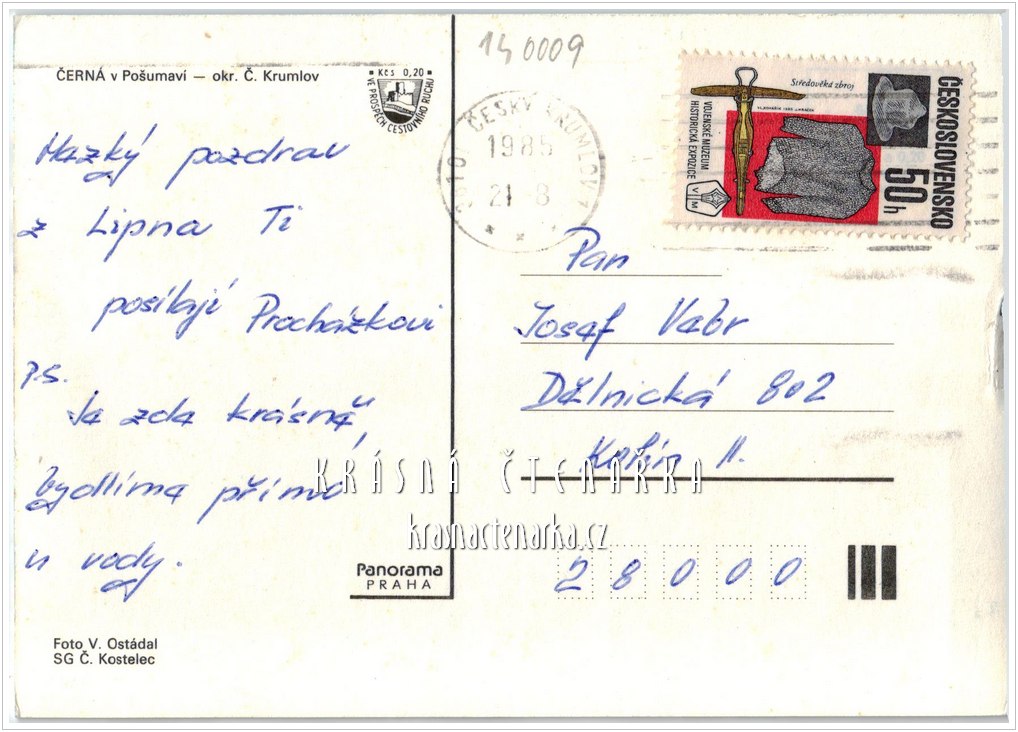 140009
ČERNÁ v Pošumaví — okr. Č. Krumlov
Kčs 0,20
VE PROSPĚCH CESTOVNÍHO RUCHU
ČESKÝ KRUMLOV
1985
21 8
Středověká zbroj
VOJENSKÉ MUZEUM
HISTORICKÁ EXPOZICE
VM
ČESKOSLOVENSKO
50h
Hezký pozdrav
z Lipna Ti
posílají Procházkovi
P.S.
Je zde krásně,
bydlíme přímo
u vody.
Pan
Josef Vebr
Dělnická 802
Kolín II.
28000
KRÁSNÁ ČTENÁŘKA
krasnactenarka.cz
Panorama
PRAHA
Foto V. Ostádal
SG Č. Kostelec